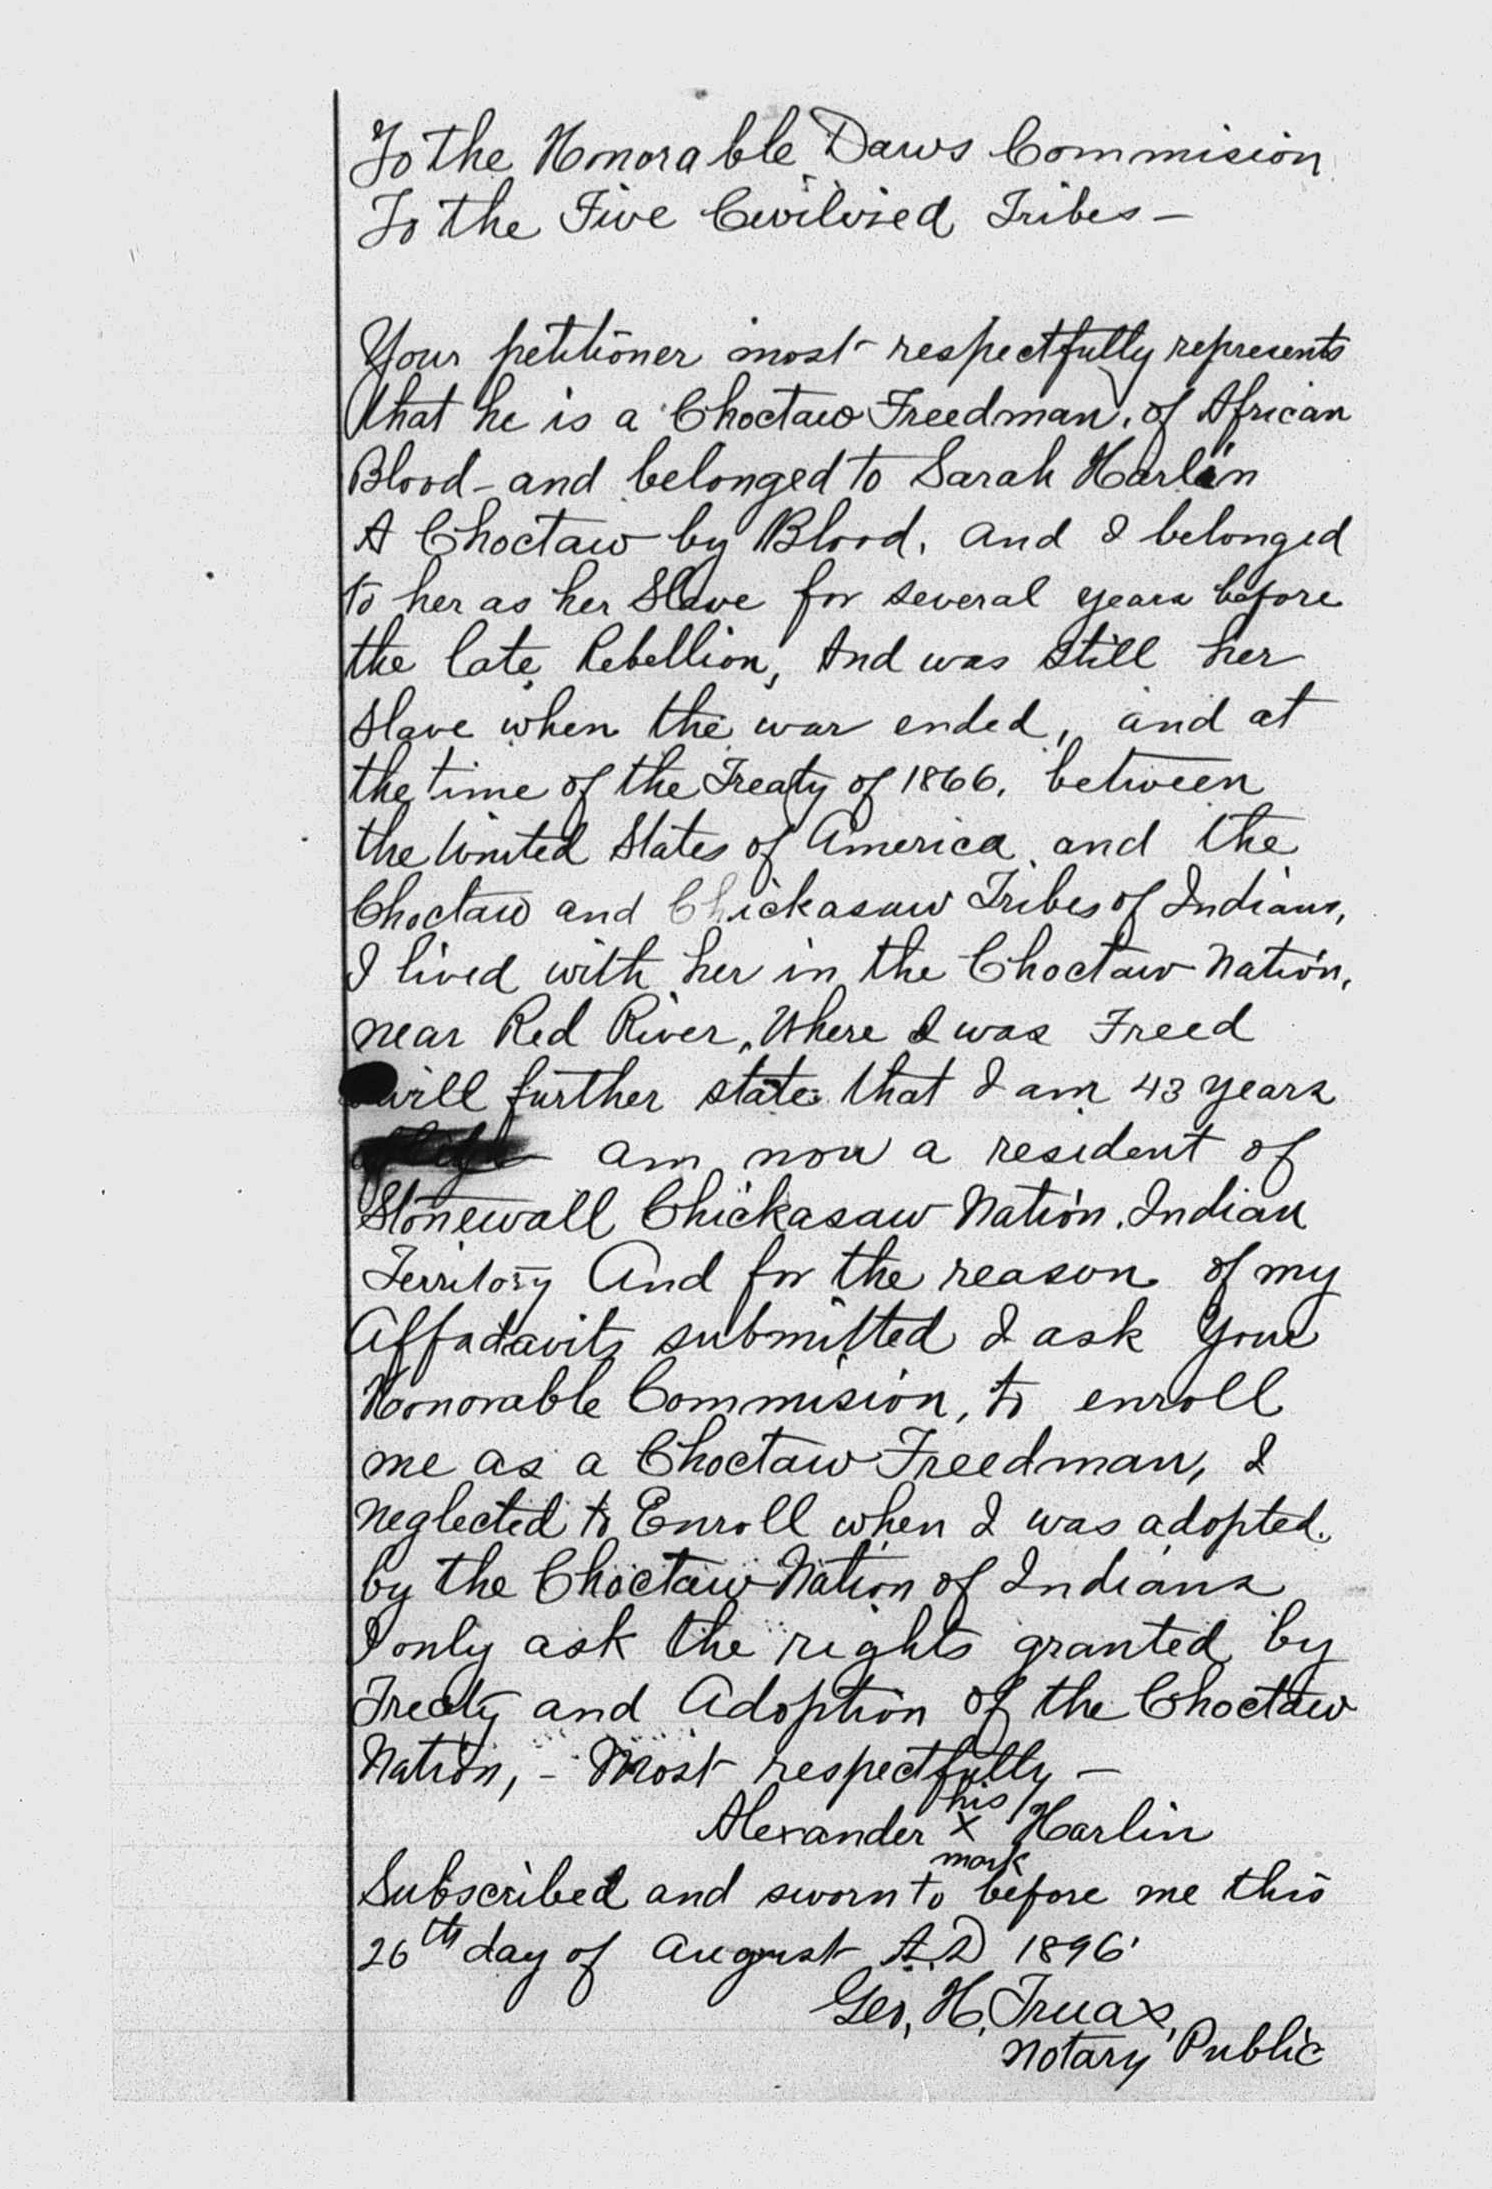 To the Honorable Daws Commision
To the Five Civilised Tribes -
Your petitioner most respectfully represents
that he is a Choctaw Freedman, of African
Blood - and belonged to Sarah Harlin
A Choctaw by Blood, and I belonged
to her as her Slave for several years before
the late Rebellion, And was still her
slave when the war ended, and at
the time of the Treaty of 1866, between
the United States of America and the
Choctaw and Chickasaw Tribes of Indians,
I lived with her in the Choctaw Nation,
near Red River, Where I was Freed
will further state that I am 43 years
am now a resident of
Stonewall Chickasaw Nation, Indian
Territory And for the reason of my
Affadavits submitted I ask Your
Honorable Commision, to enroll
me as a Choctaw Freedman, I
neglected to Enroll when I was adopted
by the Choctaw Nation of Indians
I only ask the rights granted by
Treaty and Adoption of the Choctaw
Nation, - Most respectfully -
his
Alexander X Harlin
mark
Subscribed and sworn to before me this
26th day of August A.D 1896
Geo. H. Truax,
Notary Public